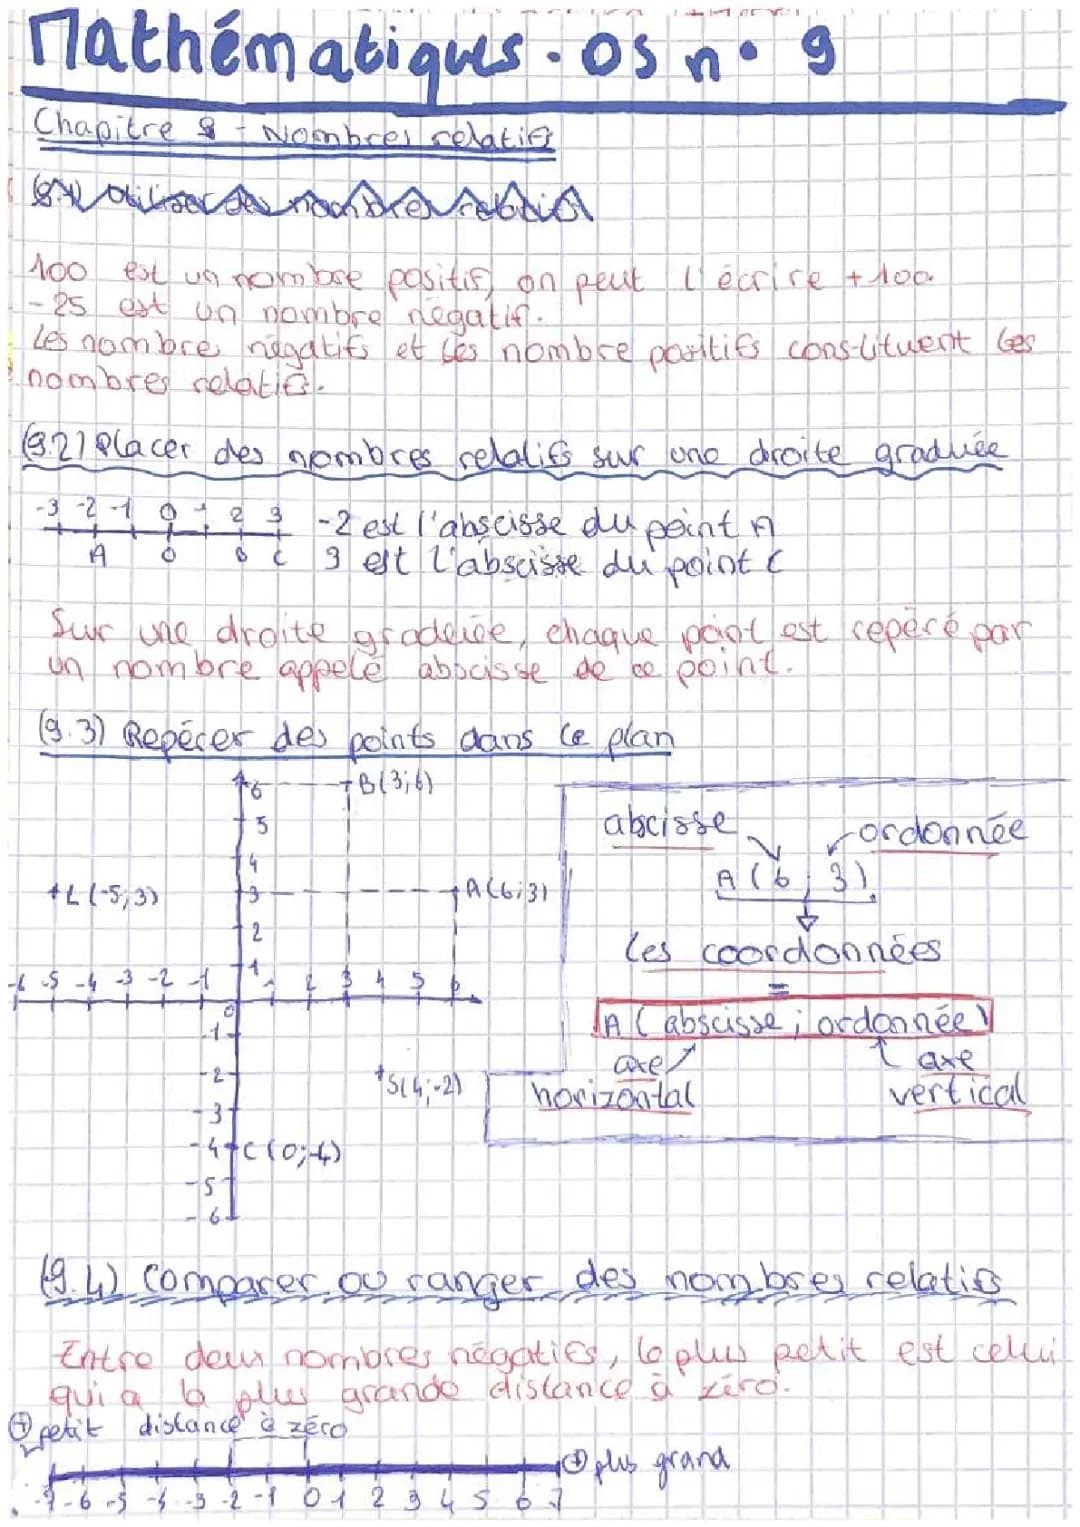 Mathématiques. OS n° 9
Chapitre 9 - Nombres relatifs
100 est un nombre positif, on peut l'écrire +100.
-25 est un nombre négatif.
Les nombre négatifs et les nombre positifs constituent les
nombres relatifs.
(9.2) Placer des nombres relatifs sur une droite graduée
-3 -2 -1 0 1 2 3
A O B C
-2 est l'abscisse du point A
3 est l'abscisse du point C
Sur une droite graduée, chaque point est repéré par
un nombre appelé abscisse de ce point.
(9.3) Repérer des points dans le plan
6 B(3;6)
5
4
L(-5;3) 3 A(6;3)
2
1
-6 -5 -4 -3 -2 -1 1 2 3 4 5 6
0
-1
-2 S(4;-2)
-3
-4 C(0;-4)
-5
-6
abscisse ordonnée
A(6;3)
les coordonnées
=
A (abscisse; ordonnée)
axe horizontal
axe vertical
(9.4) Comparer ou ranger des nombres relatifs
Entre deux nombres négatifs, le plus petit est celui
qui a la plus grande distance à zéro.
⊕ petit distance à zéro
⊕ plus grand
-7 -6 -5 -4 -3 -2 -1 0 1 2 3 4 5 6 7